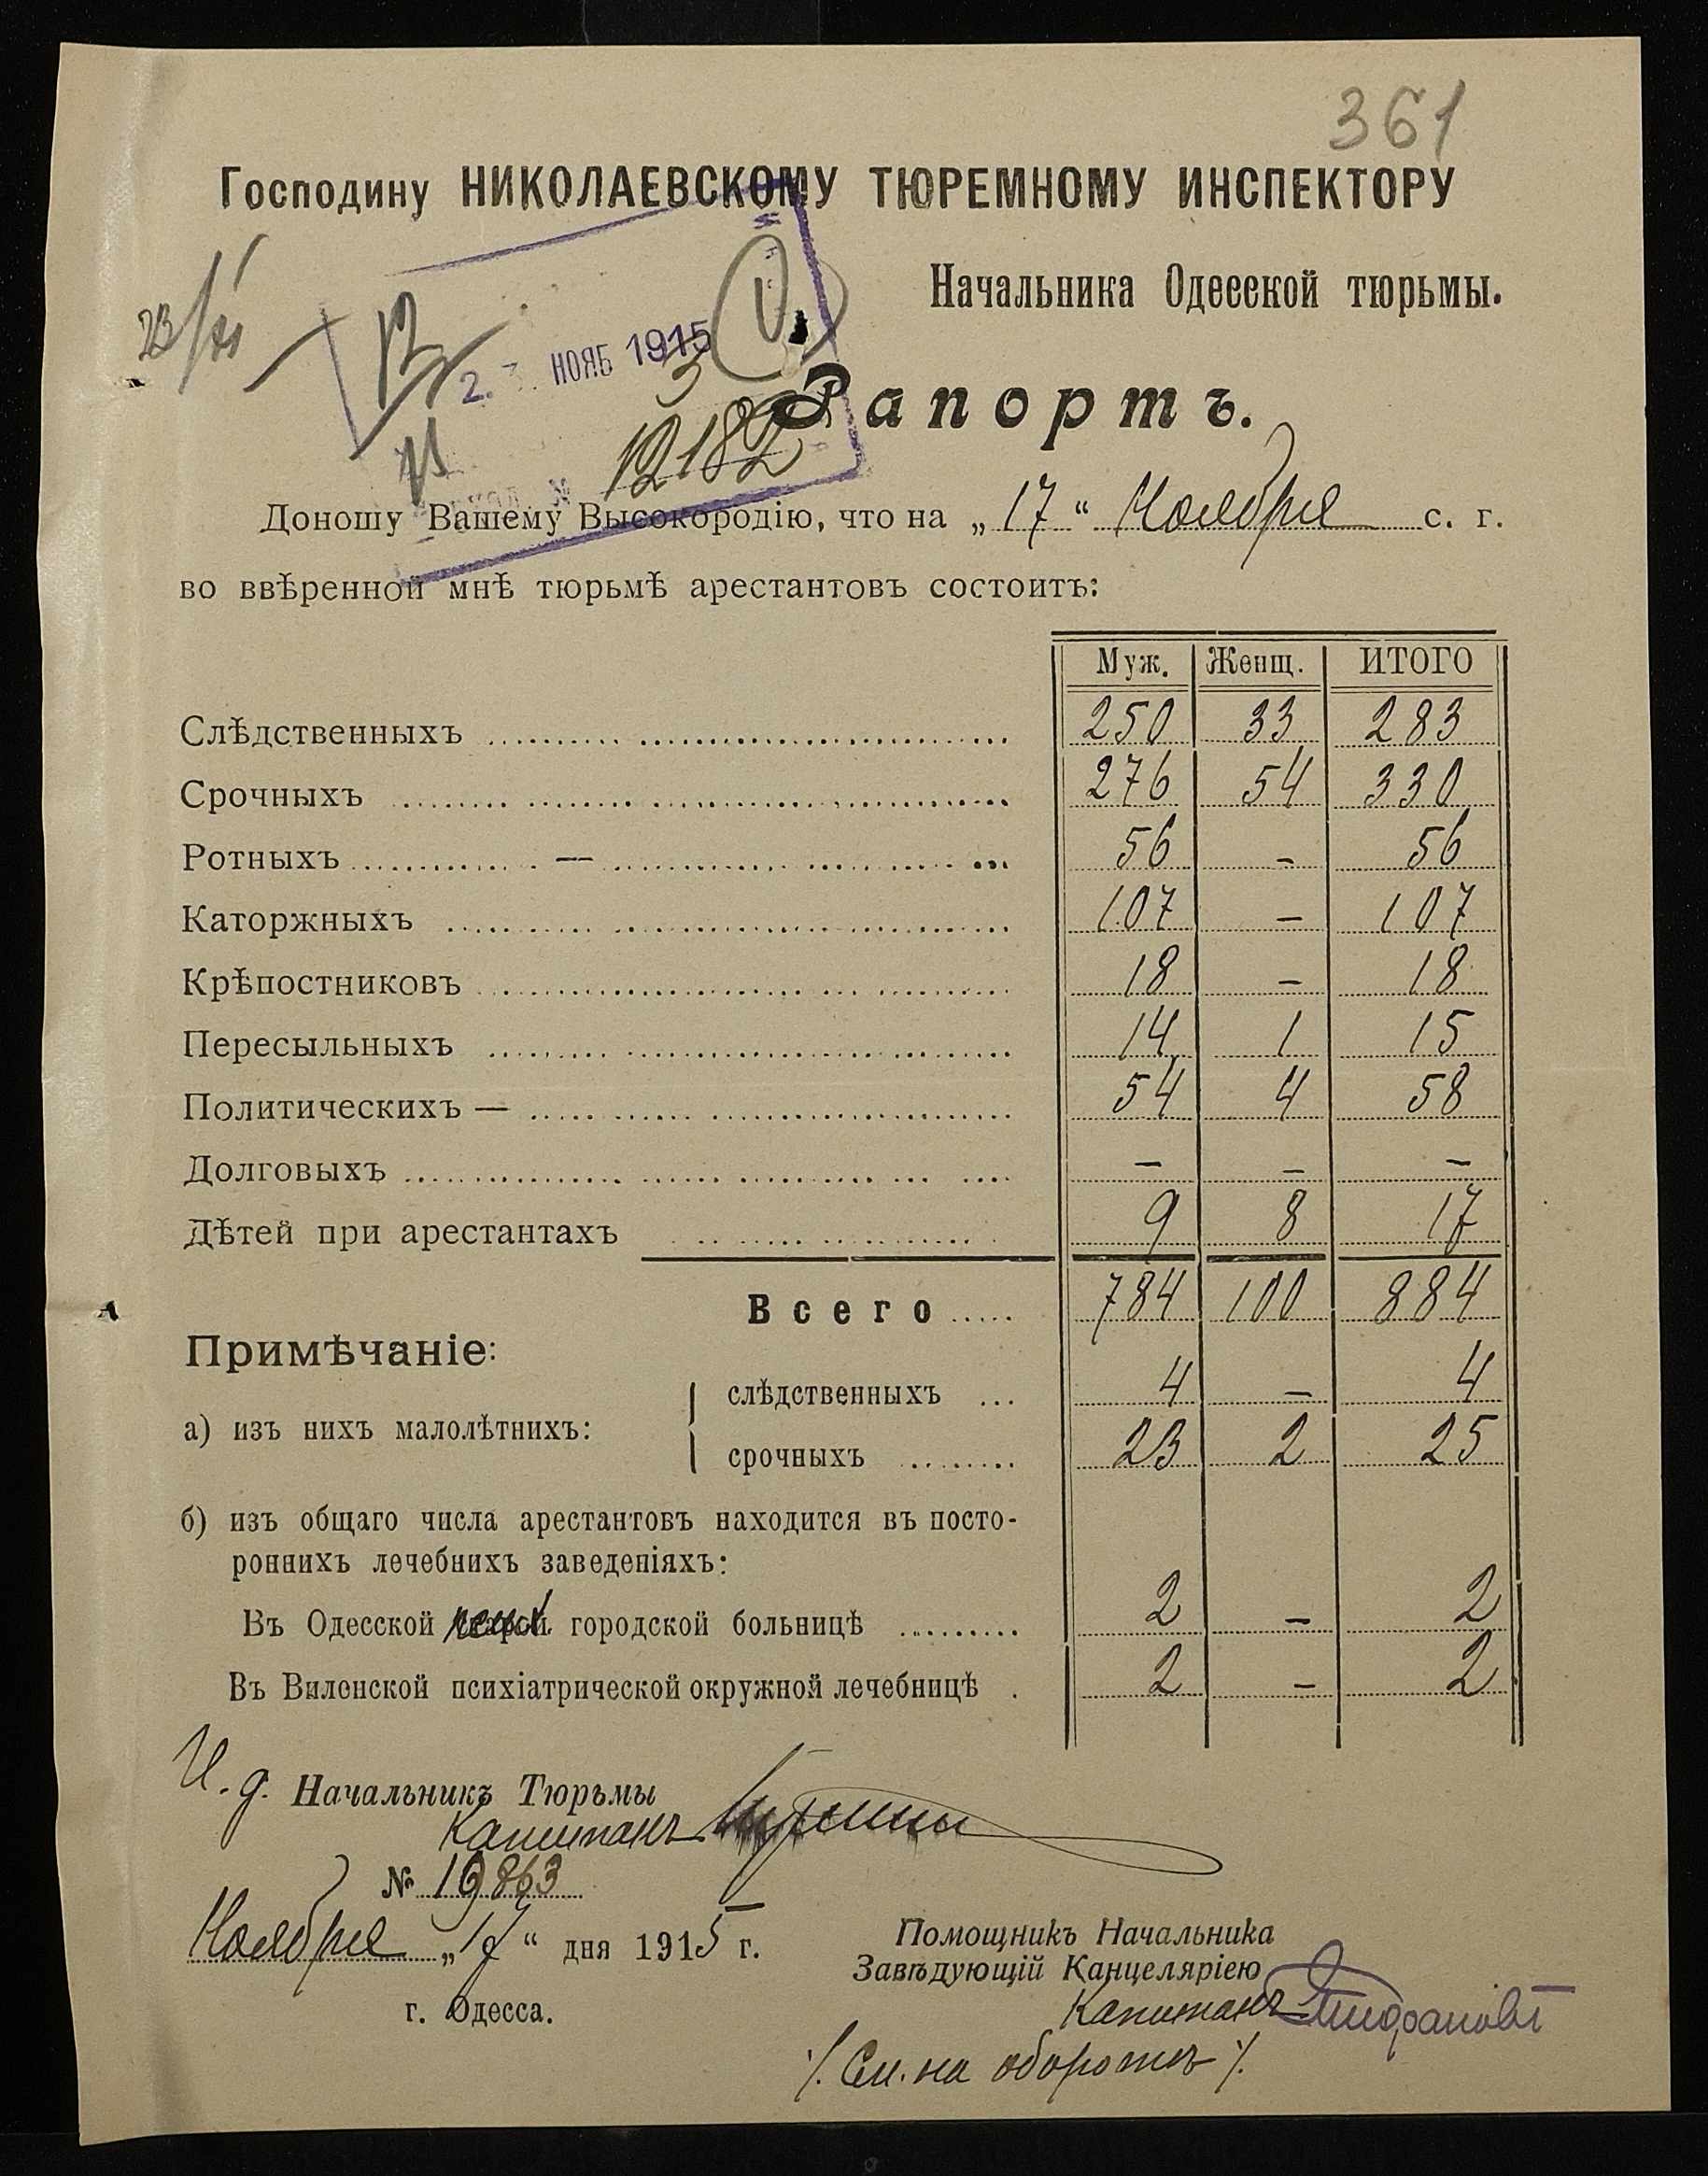 361
Господину НИКОЛАЕВСКОМУ ТЮРЕМНОМУ ИНСПЕКТОРУ
Начальника Одесской тюрьмы.
23/XI
НОЯБ 1915
12182
Рапортъ.
Доношу Вашему Высокородію, что на „17“ Ноября с. г.
во ввѣренной мнѣ тюрьмѣ арестантовъ состоитъ:
Муж. Женщ. ИТОГО
Слѣдственныхъ 250 33 283
Срочныхъ 276 54 330
Ротныхъ — 56 - 56
Каторжныхъ 107 - 107
Крѣпостниковъ 18 - 18
Пересыльныхъ 14 1 15
Политическихъ — 54 4 58
Долговыхъ - - -
Дѣтей при арестантахъ 9 8 17
Всего 784 100 884
Примѣчаніе:
а) изъ нихъ малолѣтнихъ:
слѣдственныхъ 4 - 4
срочныхъ 23 2 25
б) изъ общаго числа арестантовъ находится въ посто-
роннихъ лечебнихъ заведеніяхъ:
Въ Одесской городской больницѣ 2 - 2
Въ Виленской психіатрической окружной лечебницѣ 2 - 2
И. д. Начальникъ Тюрьмы
Капитанъ
№ 19863
Ноября „17“ дня 1915 г.
г. Одесса.
Помощникъ Начальника
Завѣдующій Канцеляріею
Капитанъ
/. См. на оборотѣ /.